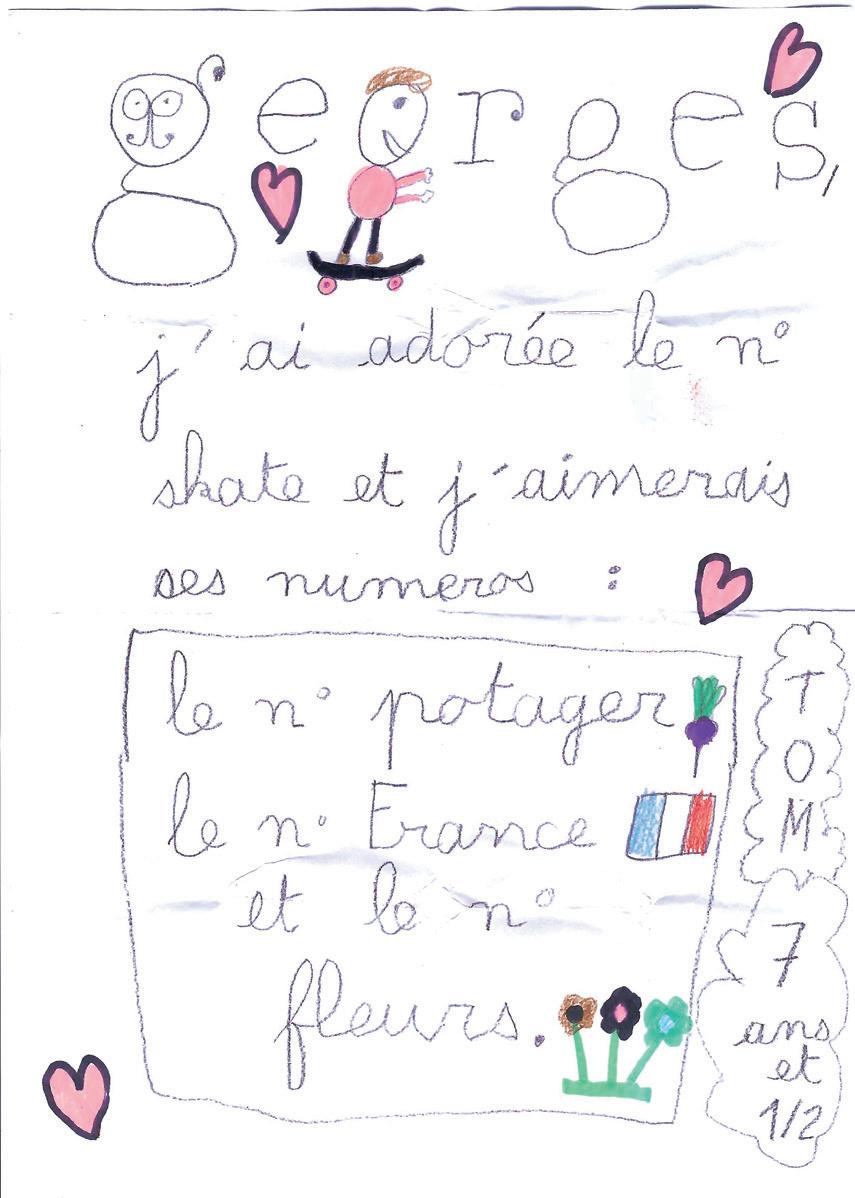 georges,
j'ai adorée le n°
skate et j'aimerais
ses numeros :
le n° potager
le n° France
et le n°
fleurs.
TOM
7
ans
et
1/2